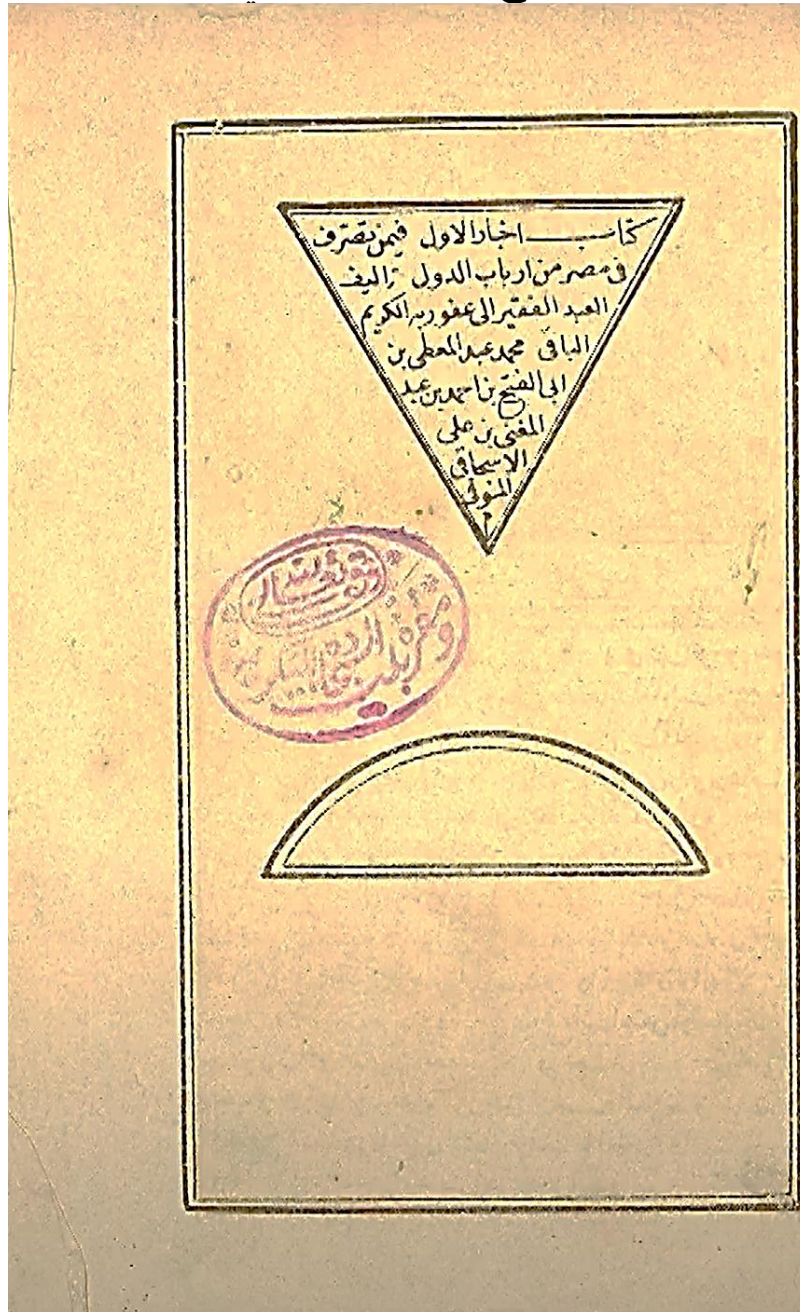 كتاب اخبار الاول فيمن تصرف
فى مصر من ارباب الدول تاليف
العبد الفقير الى عفو ربه الكريم
الباقى محمد عبد المعطى بن
ابى الفتح بن احمد بن عبد
المغنى بن على
الاسحاقى
المنوفى
م